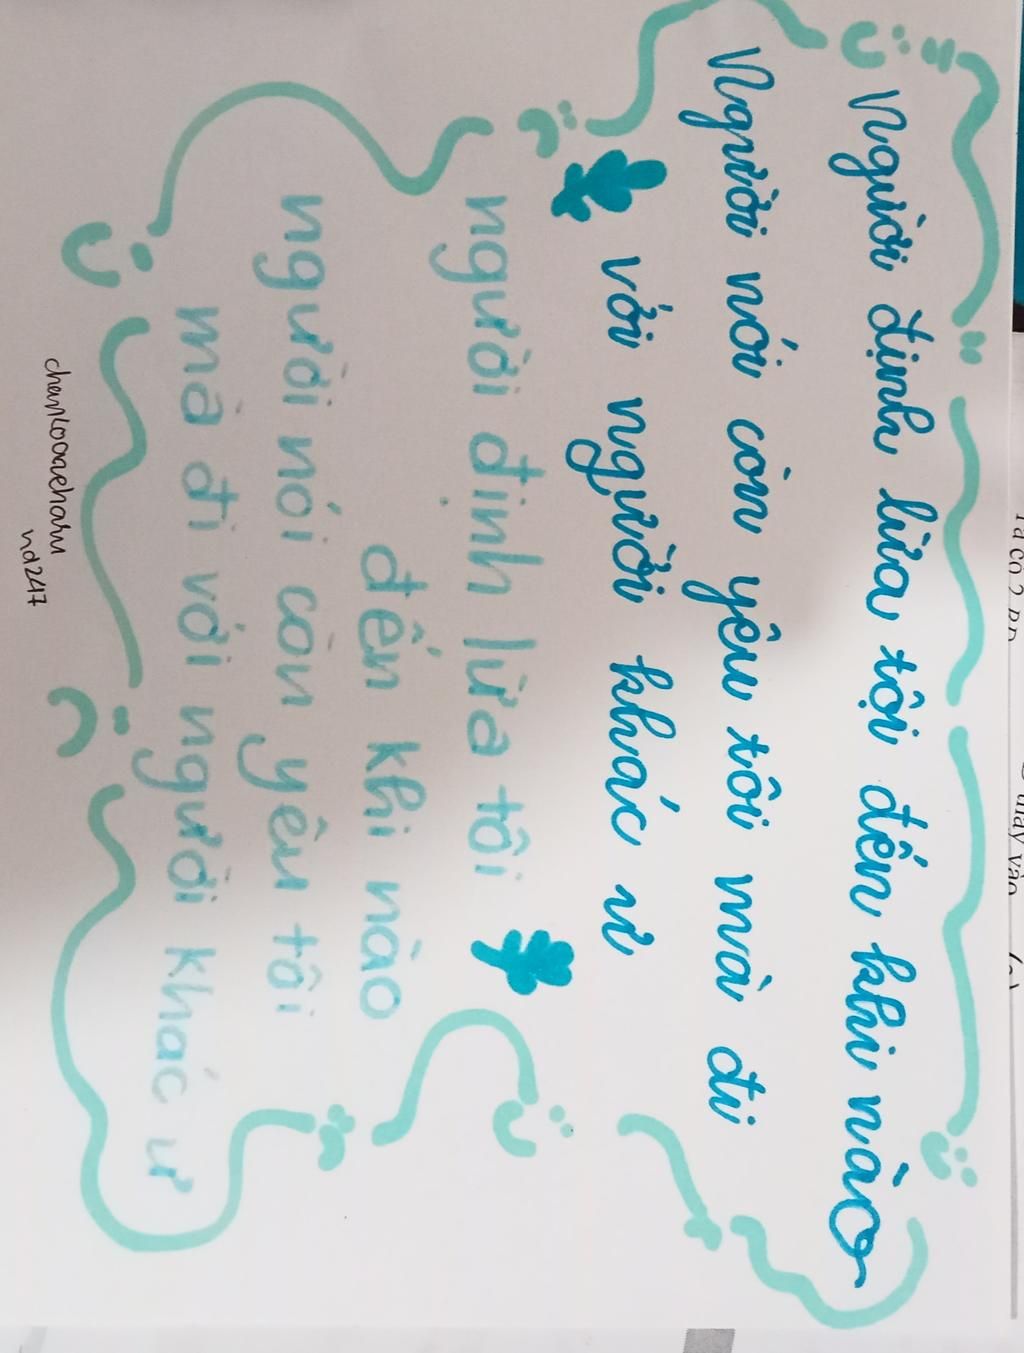 Người định lừa tội đến khi nào
Người nói còn yêu tôi mà đi
với người khác ư
người định lừa tôi
đến khi nào
người nói còn yêu tôi
mà đi với người khác ư
nd247